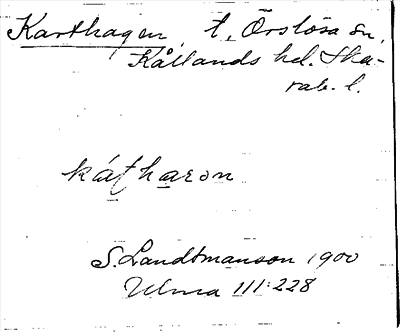 Karthagen, t, Örslösa sn,
Kållands hd. Ska-
rab. l.
kátharon
S. Landtmanson 1900
Ulma III:228